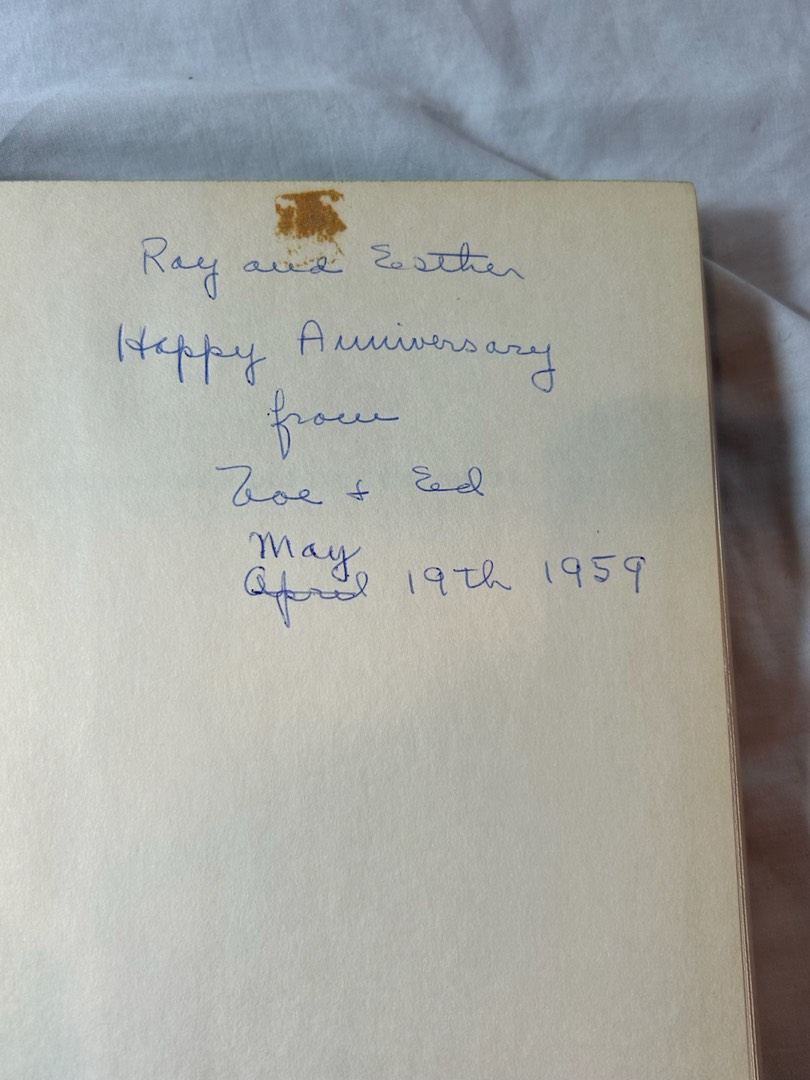 Ray and Esther
Happy Anniversary
from
Zoe + Ed
May
April 19th 1959